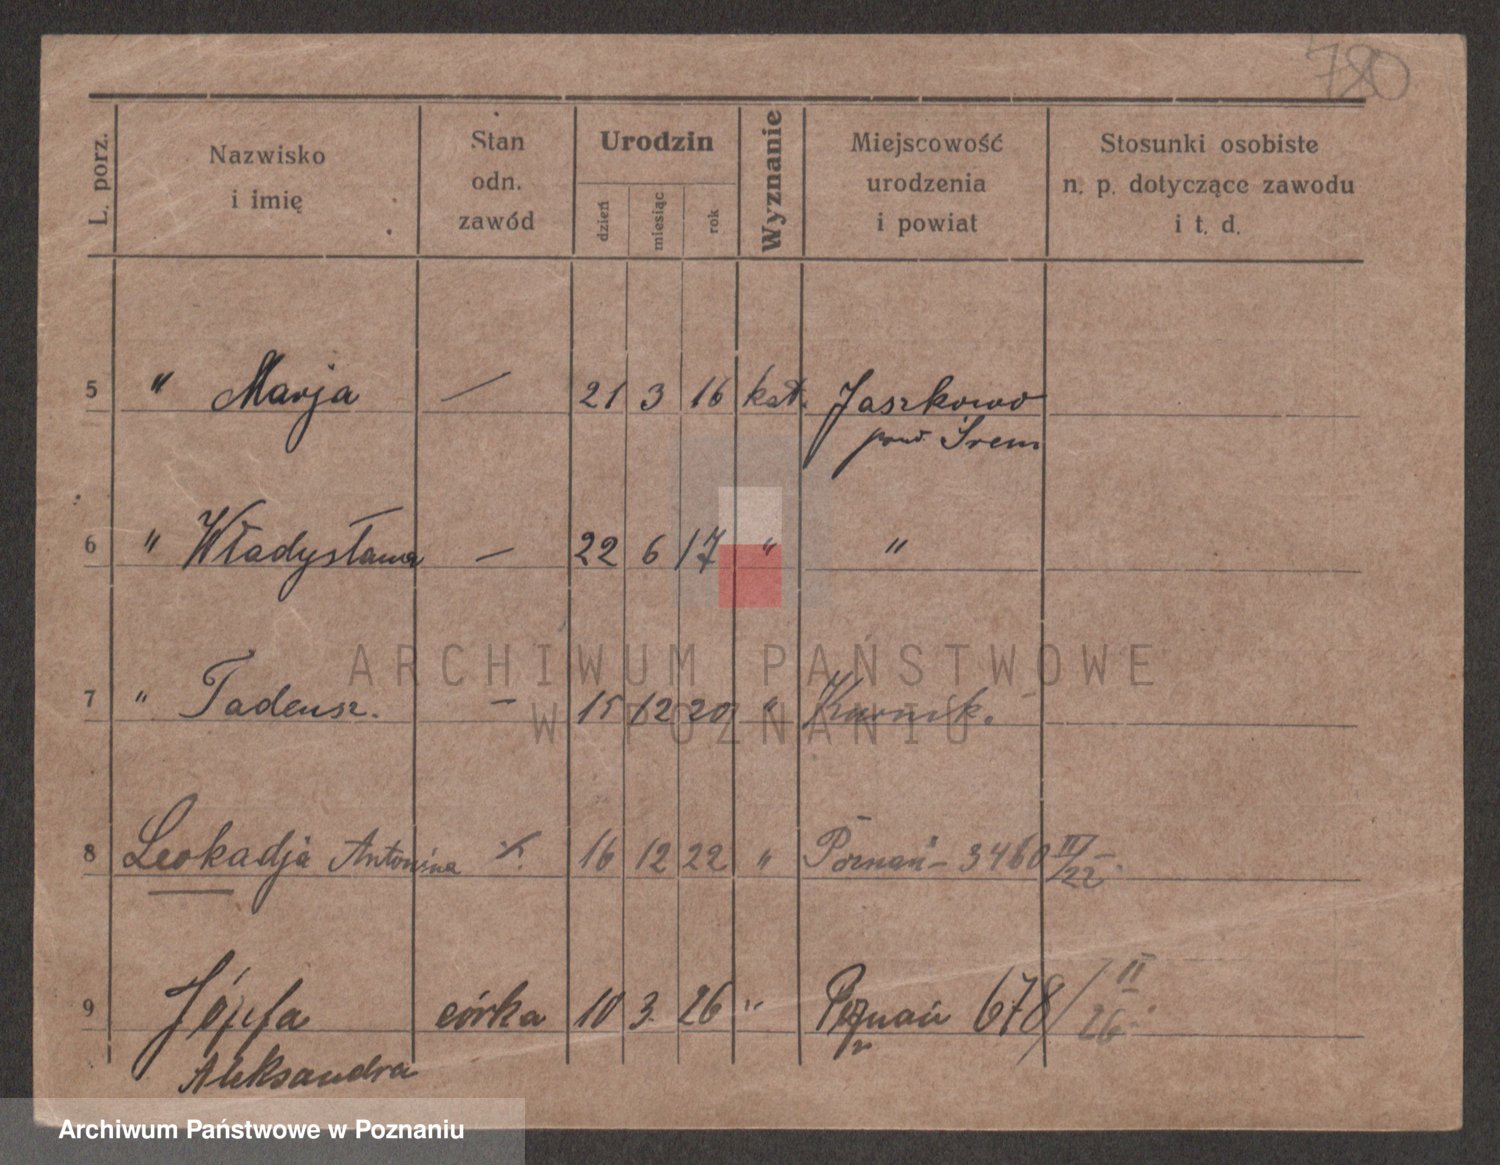 780
L. porz.
Nazwisko
i imię
Stan
odn.
zawód
Urodzin
dzień
miesiąc
rok
Wyznanie
Miejscowość
urodzenia
i powiat
Stosunki osobiste
n. p. dotyczące zawodu
i t. d.
5 " Marja — 21 3 16 kat. Jaszkowo
pow. Śrem
6 " Władysława — 22 6 17 " "
7 " Tadeusz. — 15 12 20 " Kurnik.
8 Leokadja Antonina 16 12 22 " Poznań - 3460 IV/22
9 Józefa córka 10 3. 26 " Poznań 678/II
26.
Aleksandra
ARCHIWUM PAŃSTWOWE
W POZNANIU
Archiwum Państwowe w Poznaniu